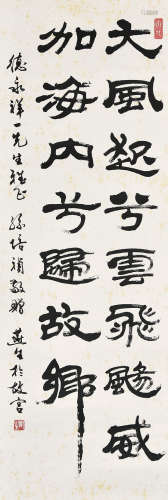 大風起兮雲飛颺威
加海内兮歸故鄉
德永祥一先生雅正 孫培禎敬贈 燕生於故宮